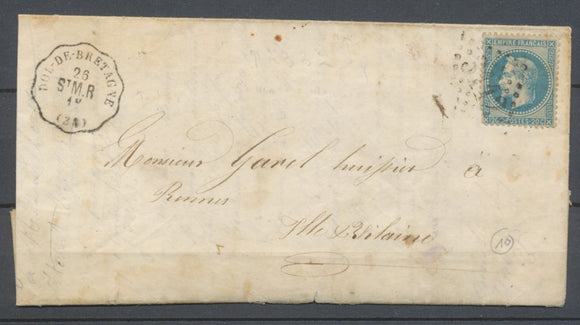 DOL-DE-BRETAGNE
26
St M.R
(34)
EMPIRE FRANÇAIS
20 POSTES 20
Monsieur Garel huissier à
Rennes
Ille & Vilaine
10